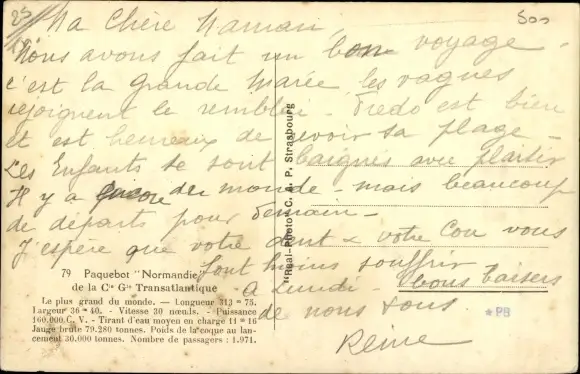 25
500
Ma Chère Maman,
Nous avons fait un bon voyage -
c'est la grande marée, les vagues
rejoignent le remblai. Fredo est bien
et est heureux de revoir sa plage -
Les Enfants se sont baignés avec plaisir
Il y a encore du monde - mais beaucoup
de départs pour demain -
J'espère que votre dent & votre cou vous
font moins souffrir.
A Lundi - bons baisers
de nous tous.
Reine
"Real-Photo" C. A. P. Strasbourg
79 Paquebot "Normandie"
de la Cie Gle Transatlantique
Le plus grand du monde. — Longueur 313 m 75.
Largeur 36 m 40. - Vitesse 30 nœuds. - Puissance
160.000 C. V. - Tirant d'eau moyen en charge 11 m 16
Jauge brute 79.280 tonnes. Poids de la coque au lan-
cement 30.000 tonnes. Nombre de passagers : 1.971.
*PB